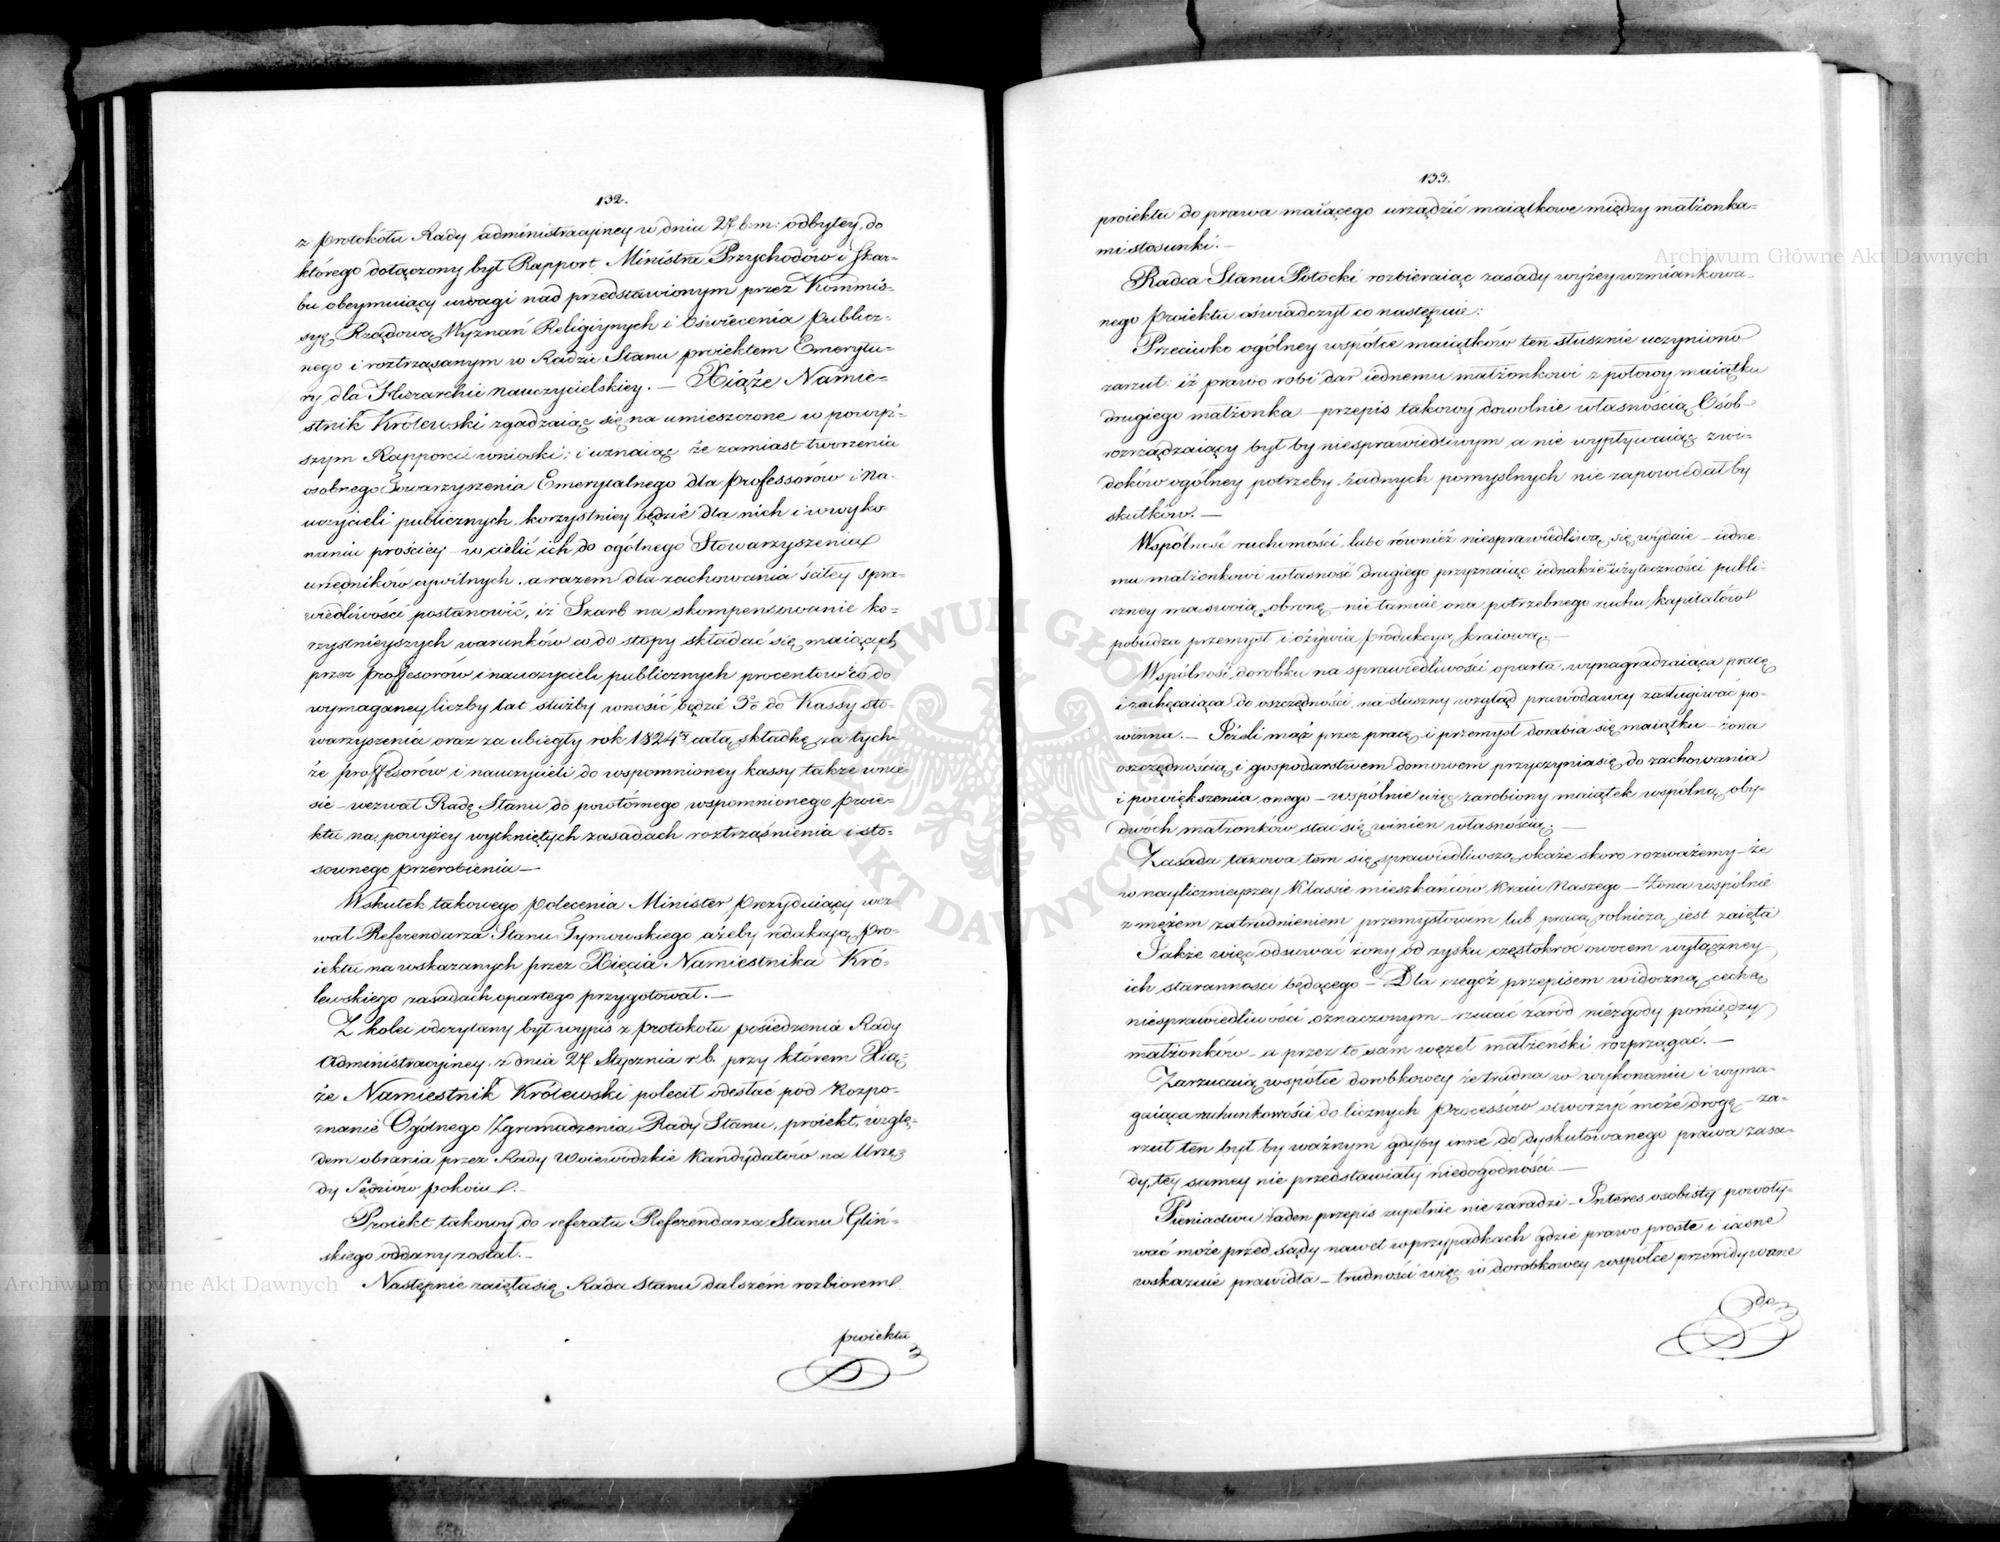 132.
z protokułu Rady administracyiney w dniu 27 b:m: odbytey, do
którego dołączony był Rapport Ministra Przychodów i Skar-
bu obeymuiący uwagi nad przedstawionym przez Kommis-
syę Rządową Wyznań Religiynych i Oświecenia publicz-
nego i roztrząsanym w Radzie Stanu proiektem Emerytu-
ry dla Hierarchii nauczycielskiey. — Xiąże Namie-
stnik Królewski zgadzaiąc się na umieszczone w powyż-
szym Rapporcie wnioski; i uznaiąc że zamiast tworzenia
osobnego Towarzyszenia Emerytalnego dla professorów i na-
uczycieli publicznych, korzystniey będzie dla nich i w wyko
naniu prościey — wcielić ich do ogólnego Stowarzyszenia
urzędników cywilnych, a razem dla zachowania ścisłey spra-
wiedliwości postanowić, iż Skarb na skompensowanie ko-
rzystnieyszych warunków co do stopy składać się maiących
przez professorów i nauczycieli publicznych procentów co do
wymaganey liczby lat służby wnosić będzie 3% do Kassy sto-
warzyszenia oraz za ubiegły rok 1824ty całą składkę za tych-
że professorów i nauczycieli do wspomnioney kassy także wnie-
sie — wezwał Radę Stanu do powtórnego wspomnionego proie-
ktu na powyżey wytkniętych zasadach roztrząśnienia i sto-
sownego przerobienia —
Wskutek takowego polecenia Minister prezyduiący wez-
wał Referendarza Stanu Tymowskiego ażeby redakcyą pro-
iektu na wskazanych przez Xięcia Namiestnika Kró-
lewskiego zasadach opartego przygotował. —
Z kolei odczytany był wypis z protokułu posiedzenia Rady
Administracyiney z dnia 27 Stycznia r.b. przy którem Xią-
że Namiestnik Królewski polecił odesłać pod Rozpo-
znanie Ogólnego Zgromadzenia Rady Stanu, proiekt, wzglę-
dem obrania przez Rady Woiewódzkie Kandydatów na Urzę-
dy Sędziów pokoiu. —
Proiekt takowy do referatu Referendarza Stanu Gliń-
skiego oddany został. —
Następnie zaięła się Rada Stanu dalszém rozbiorem
proiektu
133.
proiektu do prawa maiącego urządzić maiątkowe między małżonka-
mi stosunki. —
Radca Stanu Potocki rozbieraiąc zasady wyżey wzmiankowa-
nego proiektu oświadczył co następuie:
Przeciwko ogólney współce maiątków ten słusznie uczyniono
zarzut: iż prawo robi dar iednemu małżonkowi z połowy maiątku
drugiego małżonka — przepis takowy dowolnie własnością Osób
rozrządzaiący był by niesprawiedliwym, a nie wypływaiąc z wi-
doków ogólney potrzeby, żadnych pomyślnych nie zapowiedał by
skutków. —
Wspólność ruchomości, lubo również niesprawiedliwą się wydaie — iedne-
mu małżonkowi własność drugiego przyznaiąc iednakże użyteczności publi-
czney ma swoią obronę — nie tamuie ona potrzebnego ruchu kapitałów
pobudza przemysł i ożywia produkcyą kraiową. —
Wspólność dorobku na sprawiedliwości oparta, wynagradzaiąca pracę
i zachęcaiąca do oszczędności, na słuszny wzgląd prawodawcy zasługiwać po-
winna. — Jeżeli mąż przez pracę i przemysł dorabia się maiątku — żona
oszczędnością i gospodarstwem domowem przyczynia się do zachowania
i powiększenia onego — wspólnie więc zarobiony maiątek wspólną oby-
dwóch małżonków stać się winien własnością. —
Zasada takowa tem się sprawiedliwszą okaże skoro rozważemy — że
w nayliczniejszey klassie mieszkańców Kraiu Naszego — żona wspólnie
z mężem zatrudnieniem przemysłowém lub pracą rolniczą jest zaięta
Jakże więc odsuwać żony od zysku częstokroć owocem wyłączney
ich staranności będącego — Dla czegóż przepisem widoczną cechą
niesprawiedliwości oznaczonym — rzucać zaród niezgody pomiędzy
małżonków — a przez to sam węzeł małżeński rozprzągać. —
Zarzucaią współce dorobkowey że trudna w wykonaniu i wyma-
gaiąca rachunkowości do licznych Processów otworzyć może drogę — za-
rzut ten był by ważnym gdyby inne do dyskutowanego prawa zasa-
dy, tey samey nie przedstawiały niedogodności. —
Pieniactwu żaden przepis zupełnie nie zaradzi — Interes osobisty powoły-
wać może przed sądy nawet w przypadkach gdzie prawo proste i iasne
wskazuie prawidła — trudności więc w dorobkowey współce przewidywane
do
Archiwum Główne Akt Dawnych
Archiwum Główne Akt Dawnych
ARCHIWUM GŁÓWNE AKT DAWNYCH